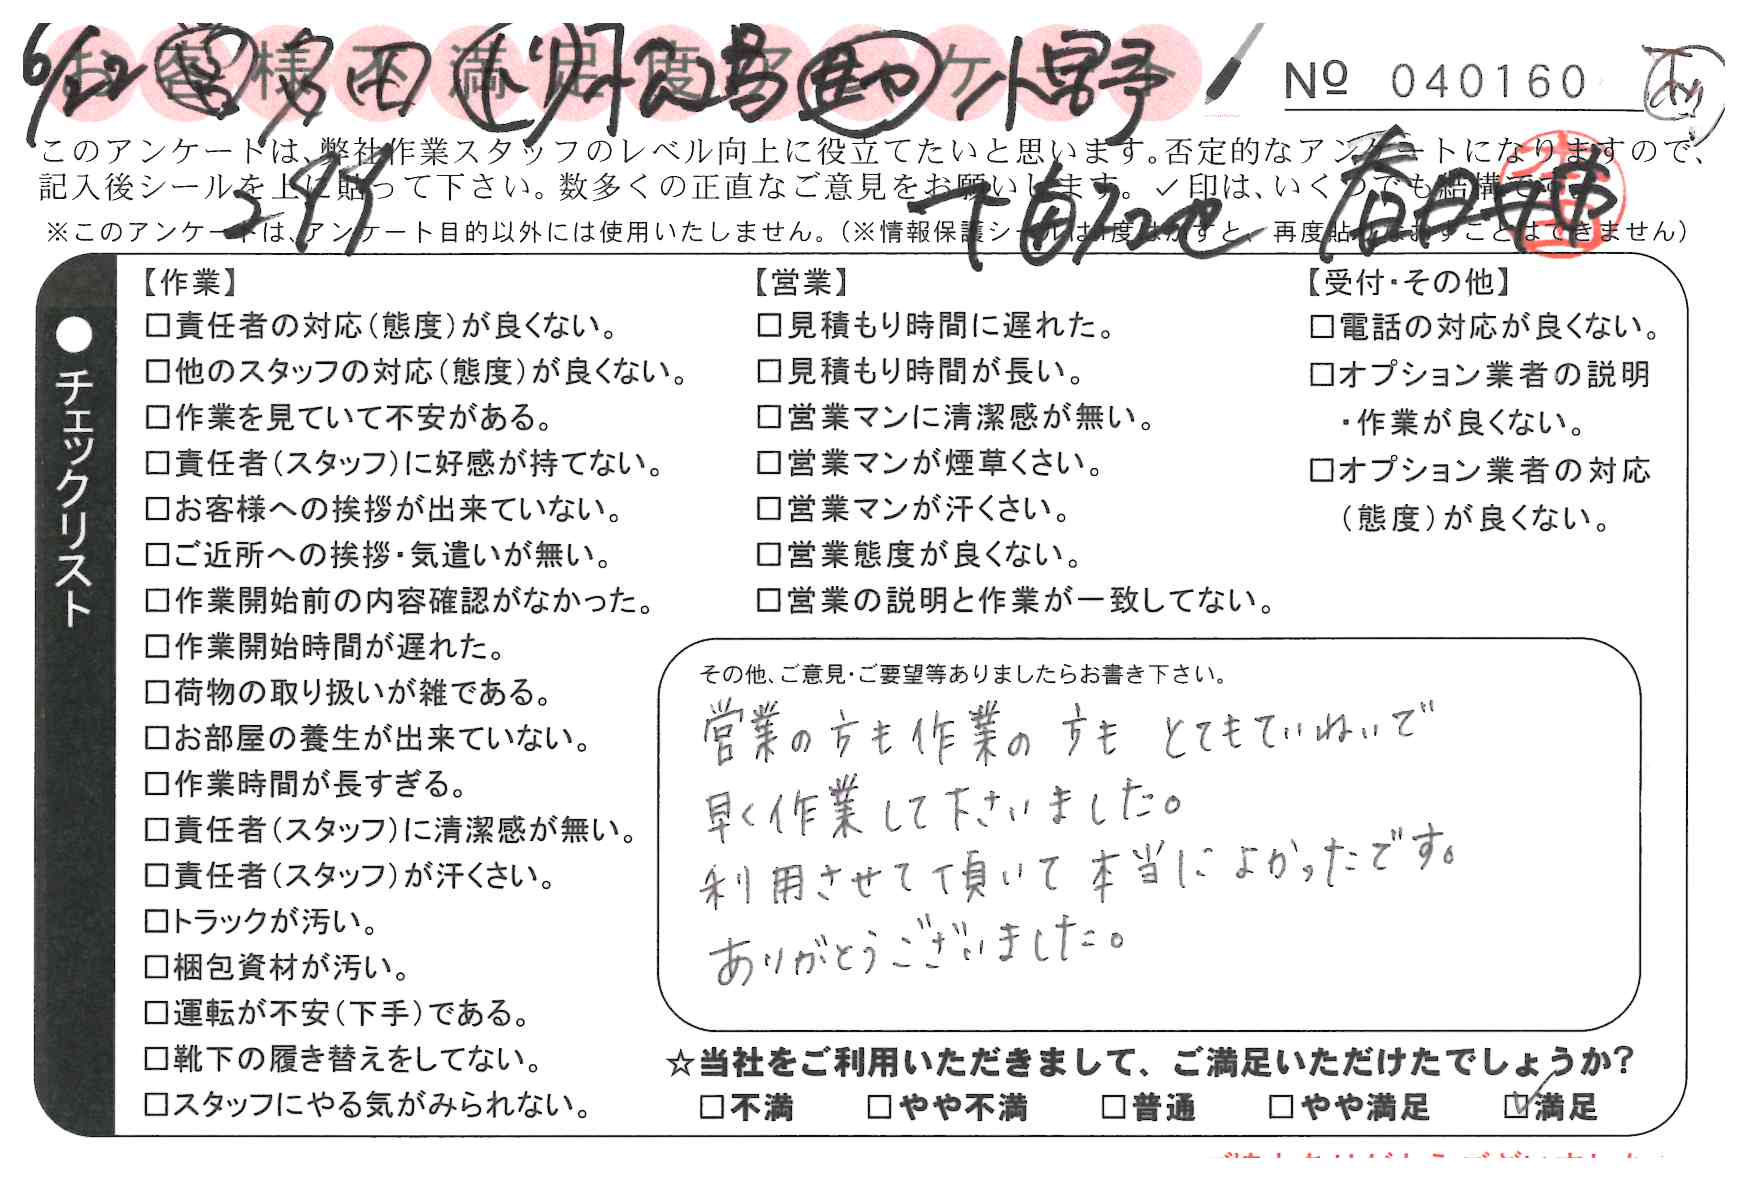 お客様不満足度アンケート
6/22
No 040160
このアンケートは、弊社作業スタッフのレベル向上に役立てたいと思います。否定的なアンケートになりますので、
記入後シールを上に貼って下さい。数多くの正直なご意見をお願いします。✓印は、いくつでも結構です。
※このアンケートは、アンケート目的以外には使用いたしません。(※情報保護シールは1度はがすと、再度貼りなおすことはできません)
●チェックリスト
【作業】
□責任者の対応(態度)が良くない。
□他のスタッフの対応(態度)が良くない。
□作業を見ていて不安がある。
□責任者(スタッフ)に好感が持てない。
□お客様への挨拶が出来ていない。
□ご近所への挨拶・気遣いが無い。
□作業開始前の内容確認がなかった。
□作業開始時間が遅れた。
□荷物の取り扱いが雑である。
□お部屋の養生が出来ていない。
□作業時間が長すぎる。
□責任者(スタッフ)に清潔感が無い。
□責任者(スタッフ)が汗くさい。
□トラックが汚い。
□梱包資材が汚い。
□運転が不安(下手)である。
□靴下の履き替えをしてない。
□スタッフにやる気がみられない。
【営業】
□見積もり時間に遅れた。
□見積もり時間が長い。
□営業マンに清潔感が無い。
□営業マンが煙草くさい。
□営業マンが汗くさい。
□営業態度が良くない。
□営業の説明と作業が一致してない。
【受付・その他】
□電話の対応が良くない。
□オプション業者の説明
・作業が良くない。
□オプション業者の対応
(態度)が良くない。
その他、ご意見・ご要望等ありましたらお書き下さい。
営業の方も作業の方も とてもていねいで
早く作業して下さいました。
利用させて頂いて本当によかったです。
ありがとうございました。
☆当社をご利用いただきまして、ご満足いただけたでしょうか?
□不満 □やや不満 □普通 □やや満足 ☑満足